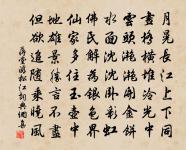 月晃長江上下同
畫橋橫絕冷光中
雲頭灩灩開金餅
水面沈沈臥彩虹
佛氏解為銀色界
仙家多住玉壺中
地雄景勝言不盡
但欲追隨乘曉風